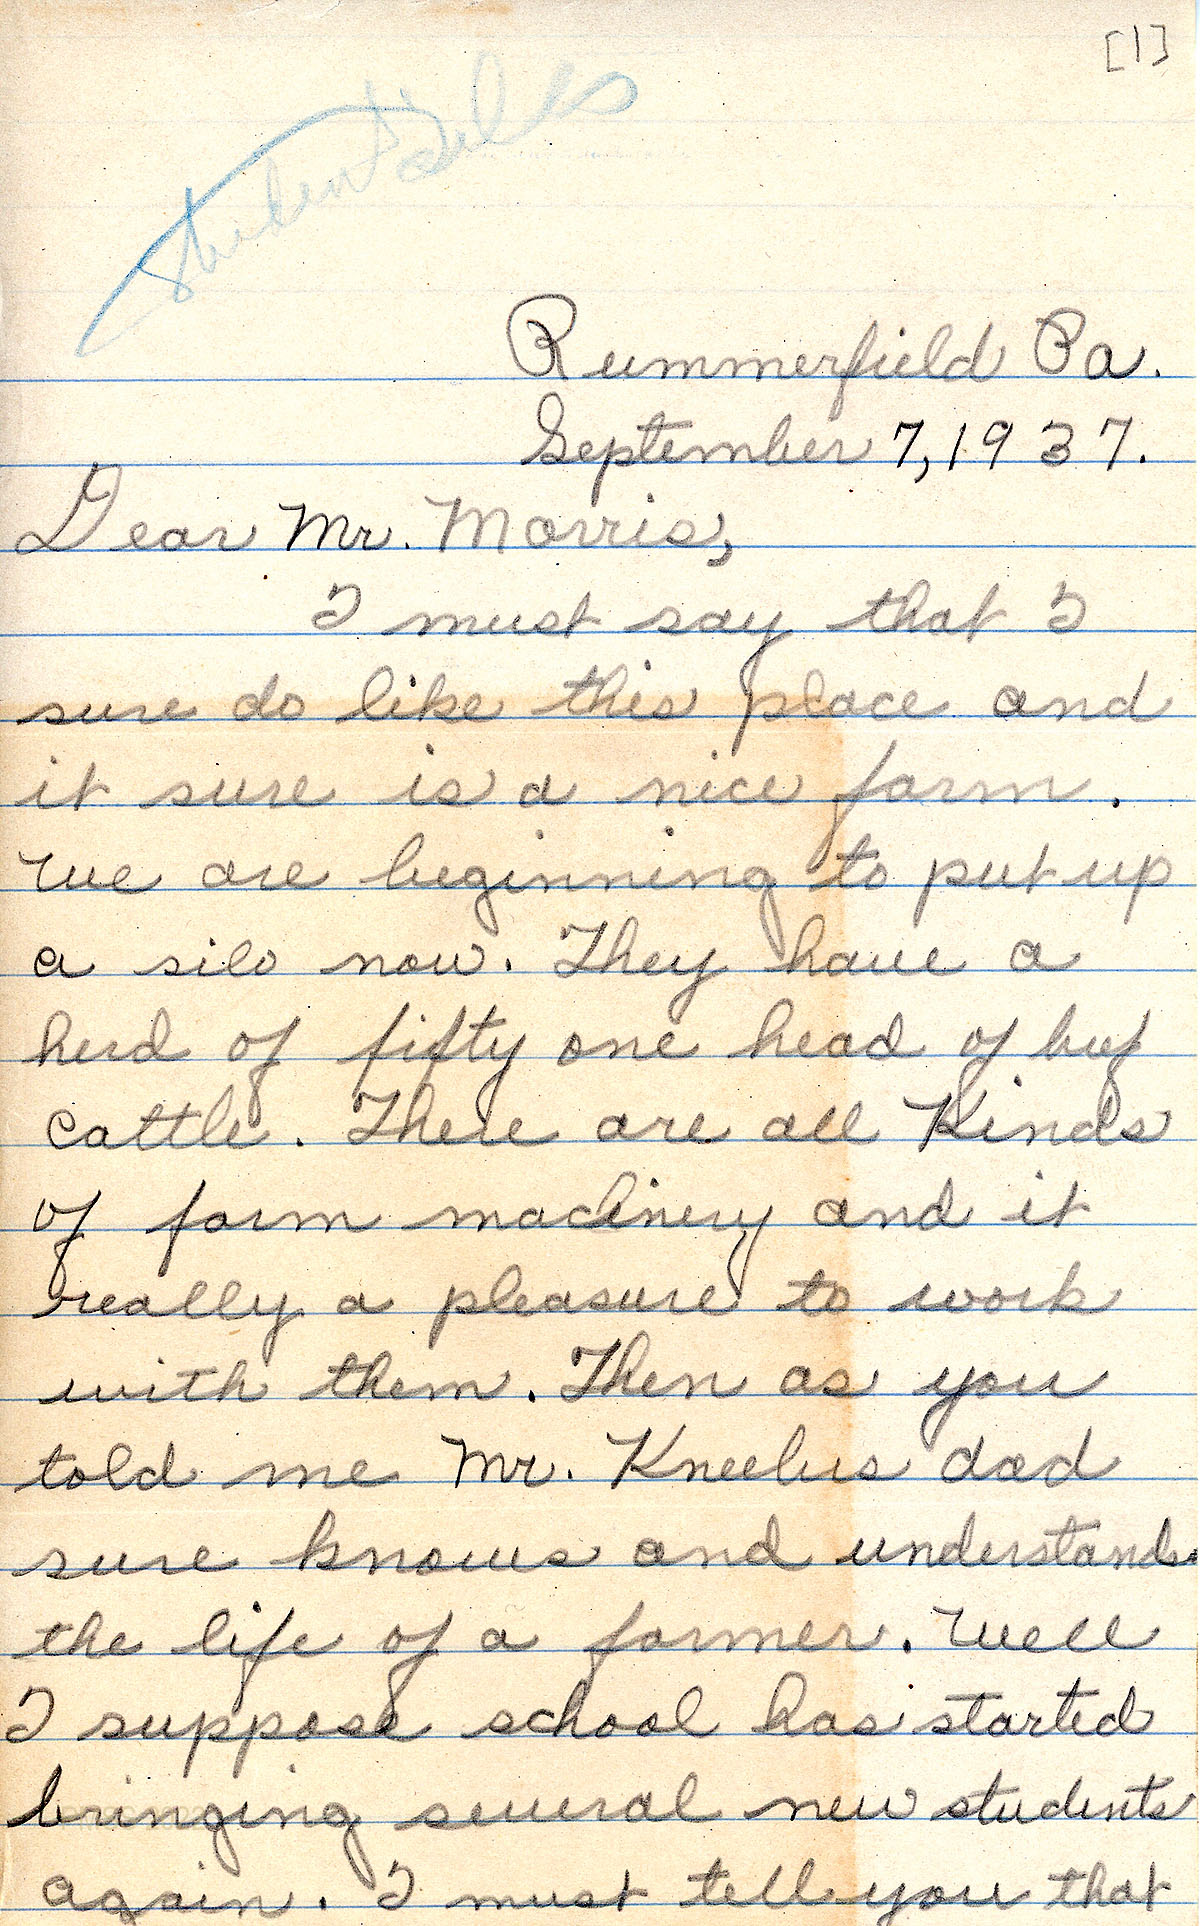 [1]
Student Files
Rummerfield Pa.
September 7, 1937.
Dear Mr. Morris,
I must say that I
sure do like this place and
it sure is a nice farm.
We are beginning to put up
a silo now. They have a
herd of fifty one head of beef
cattle. There are all Kinds
of farm machinery and it
really a pleasure to work
with them. Then as you
told me Mr. Kneelus dad
sure knows and understands
the life of a farmer. Well
I suppose school has started
bringing several new students
again. I must tell you that